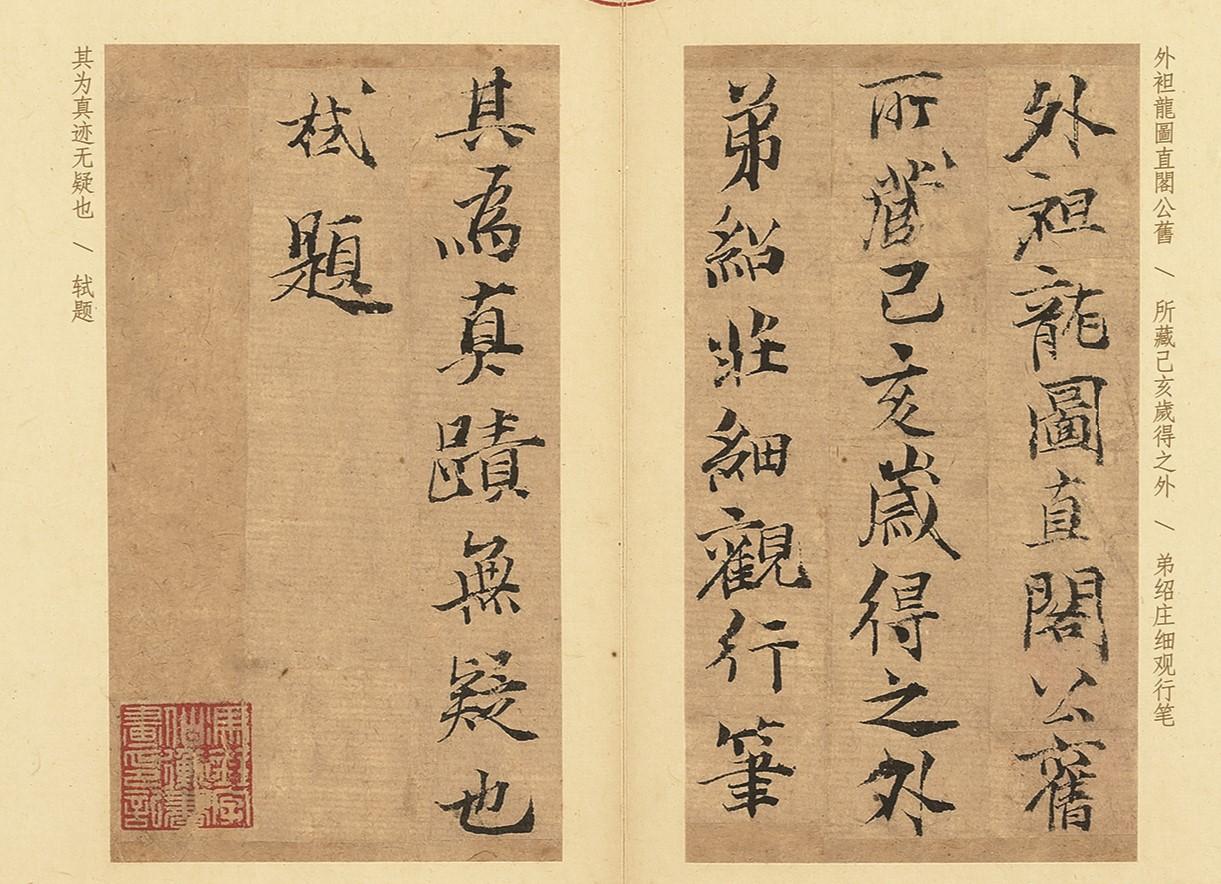 外袒龍圖直閣公舊 \ 所藏己亥歲得之外 \ 弟绍庄细观行笔
外祖龍圖直閣公舊
所藏己亥歲得之外
弟紹壯細觀行筆
其為真蹟無疑也
栻題
其为真迹无疑也 \ 轼题